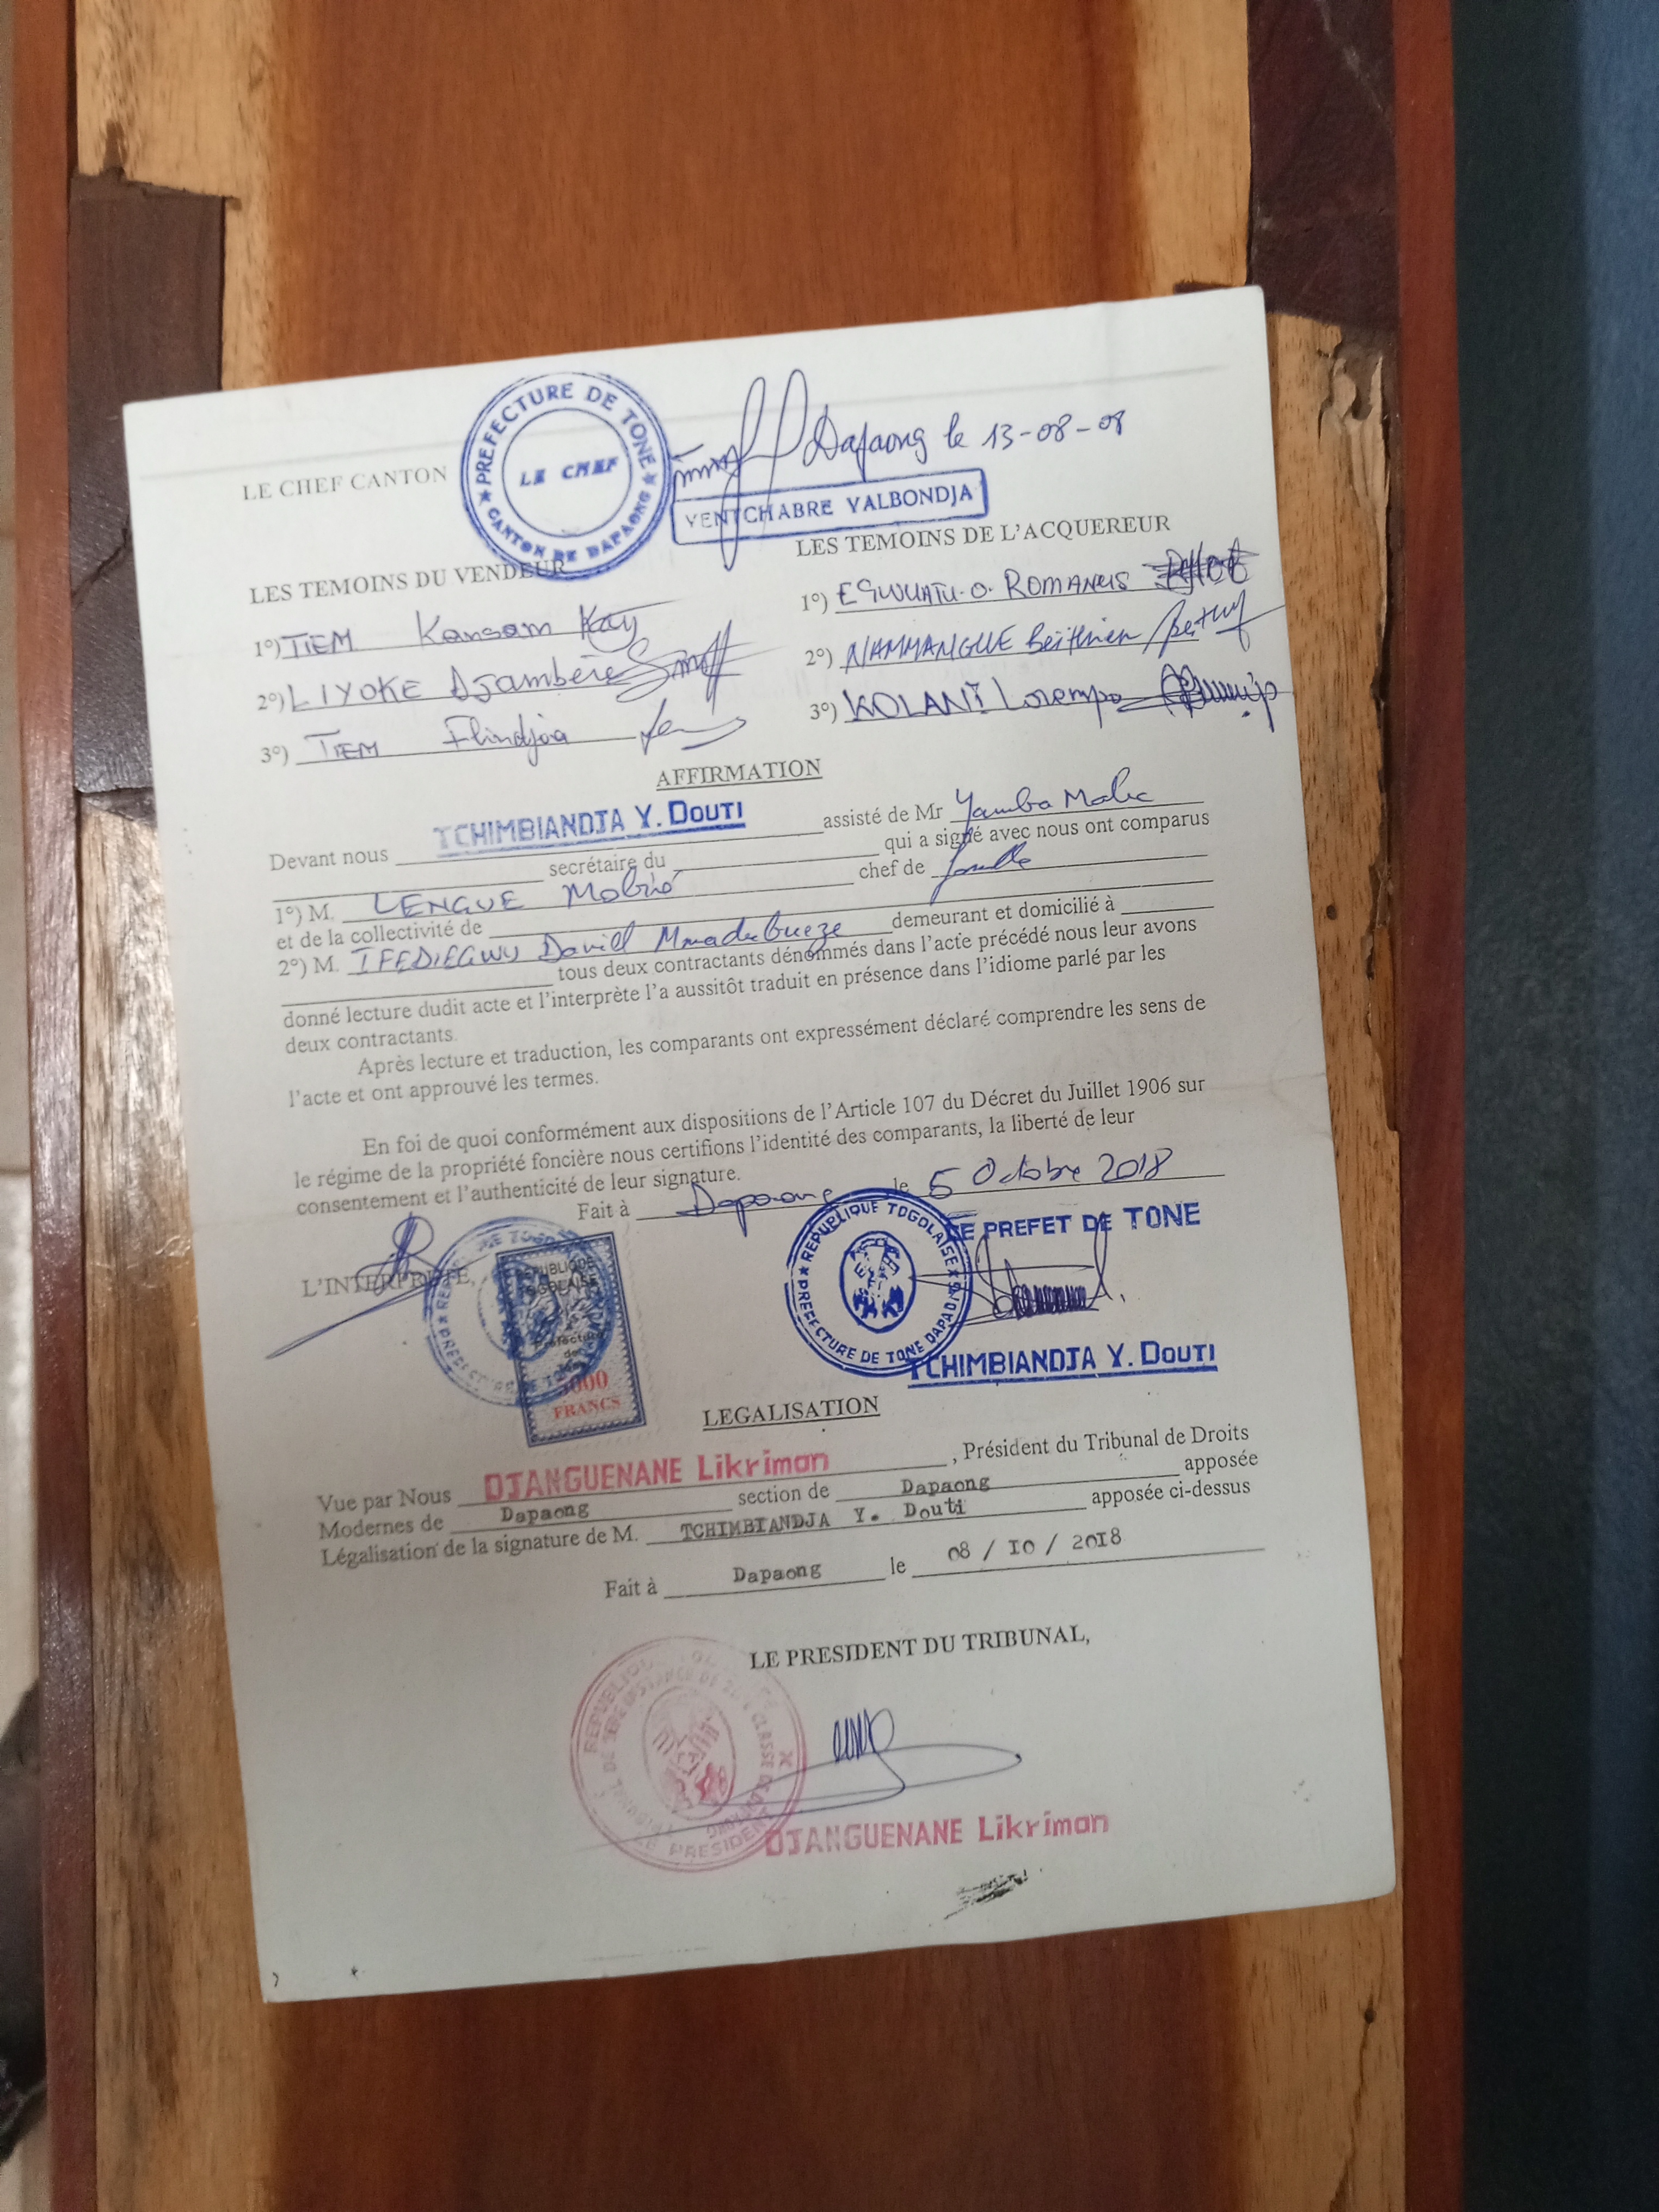 PREFECTURE DE TONE
LE CHEF
CANTON DE DAPAONG
LE CHEF CANTON
Dapaong le 13-08-08
YENTCHABRE YALBONDJA
LES TEMOINS DU VENDEUR
LES TEMOINS DE L'ACQUEREUR
1°) TIEM Kansam
2°) LIYOKE Djambére
3°) TIEM Flindjoa
1°) EGWUATU. O. ROMANUS
2°) NAMMANGUE
3°) KOLANI Lorempo
AFFIRMATION
Devant nous TCHIMBIANDJA Y. DOUTI assisté de Mr Yamba Malic
secrétaire du qui a signé avec nous ont comparus
1°) M. LENGUE chef de
et de la collectivité de
2°) M. IFEDIEGWU David Mmadubueze demeurant et domicilié à
tous deux contractants dénommés dans l'acte précédé nous leur avons
donné lecture dudit acte et l'interprète l'a aussitôt traduit en présence dans l'idiome parlé par les
deux contractants.
Après lecture et traduction, les comparants ont expressément déclaré comprendre les sens de
l'acte et ont approuvé les termes.
En foi de quoi conformément aux dispositions de l'Article 107 du Décret du Juillet 1906 sur
le régime de la propriété foncière nous certifions l'identité des comparants, la liberté de leur
consentement et l'authenticité de leur signature.
Fait à Dapaong le 5 Octobre 2018
L'INTERPRETE,
REPUBLIQUE TOGOLAISE
Prefecture
de
FRANCS
REPUBLIQUE TOGOLAISE
PREFECTURE DE TONE DAPAONG
LE PREFET DE TONE
TCHIMBIANDJA Y. DOUTI
LEGALISATION
Vue par Nous DJANGUENANE Likriman, Président du Tribunal de Droits
Modernes de Dapaong section de Dapaong apposée
Légalisation de la signature de M. TCHIMBIANDJA Y. Douti apposée ci-dessus
Fait à Dapaong le 08 / IO / 2018
LE PRESIDENT DU TRIBUNAL,
PRESIDENT
DJANGUENANE Likriman